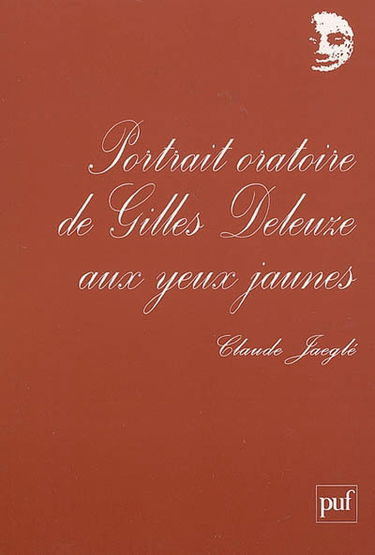 Portrait oratoire
de Gilles Deleuze
aux yeux jaunes
Claude Jaeglé
puf